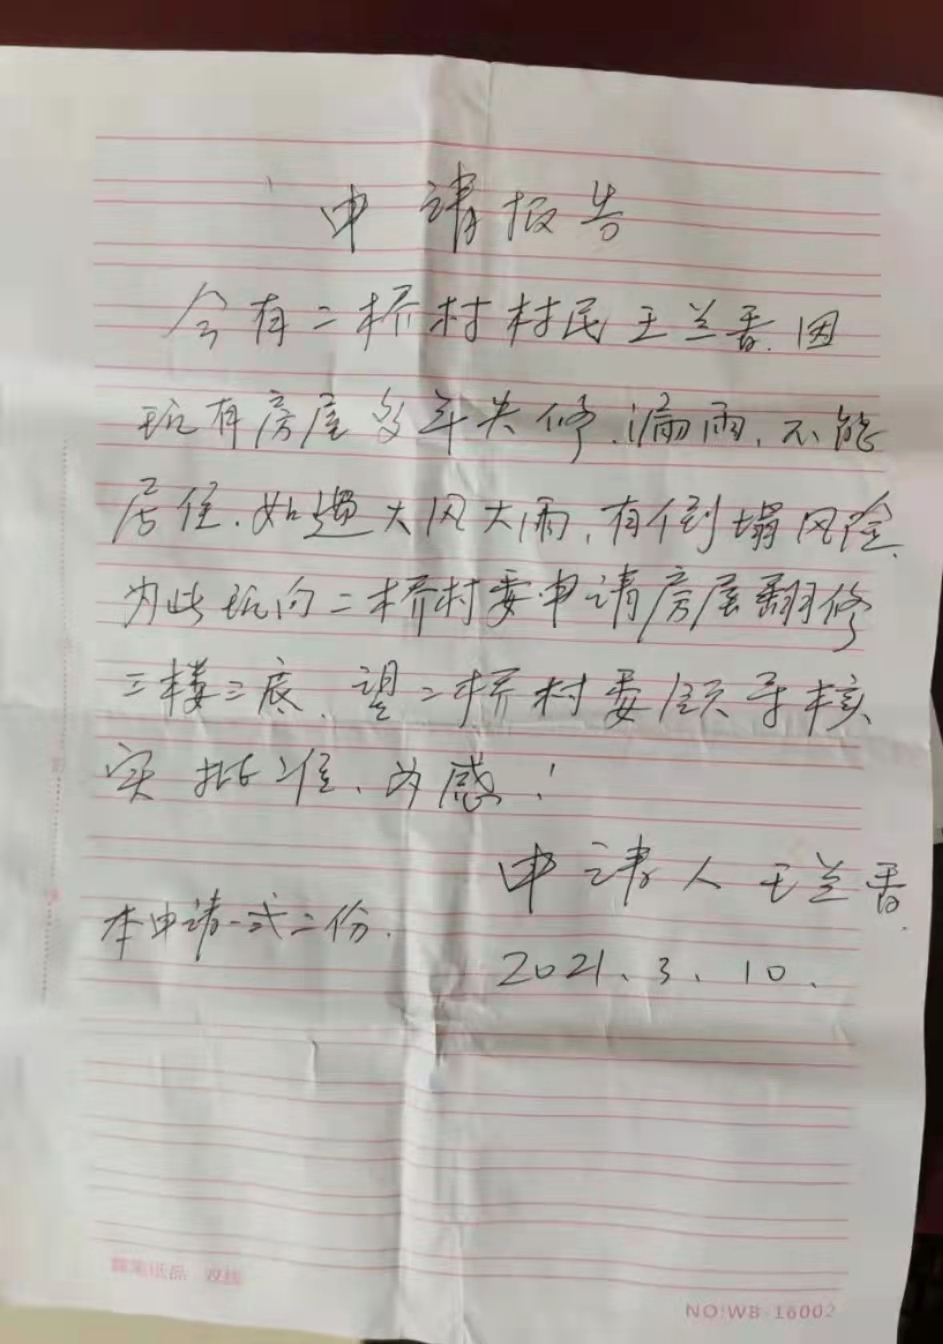 申请报告
今有二桥村村民王兰香.因
现有房屋多年失修.漏雨.不能
居住.如遇大风大雨,有倒塌风险.
为此现向二桥村委申请房屋翻修
三楼三底.望二桥村委领导核
实批准、为感!
申请人王兰香.
本申请一式二份.
2021、3、10、
双线
NO:WB-16002